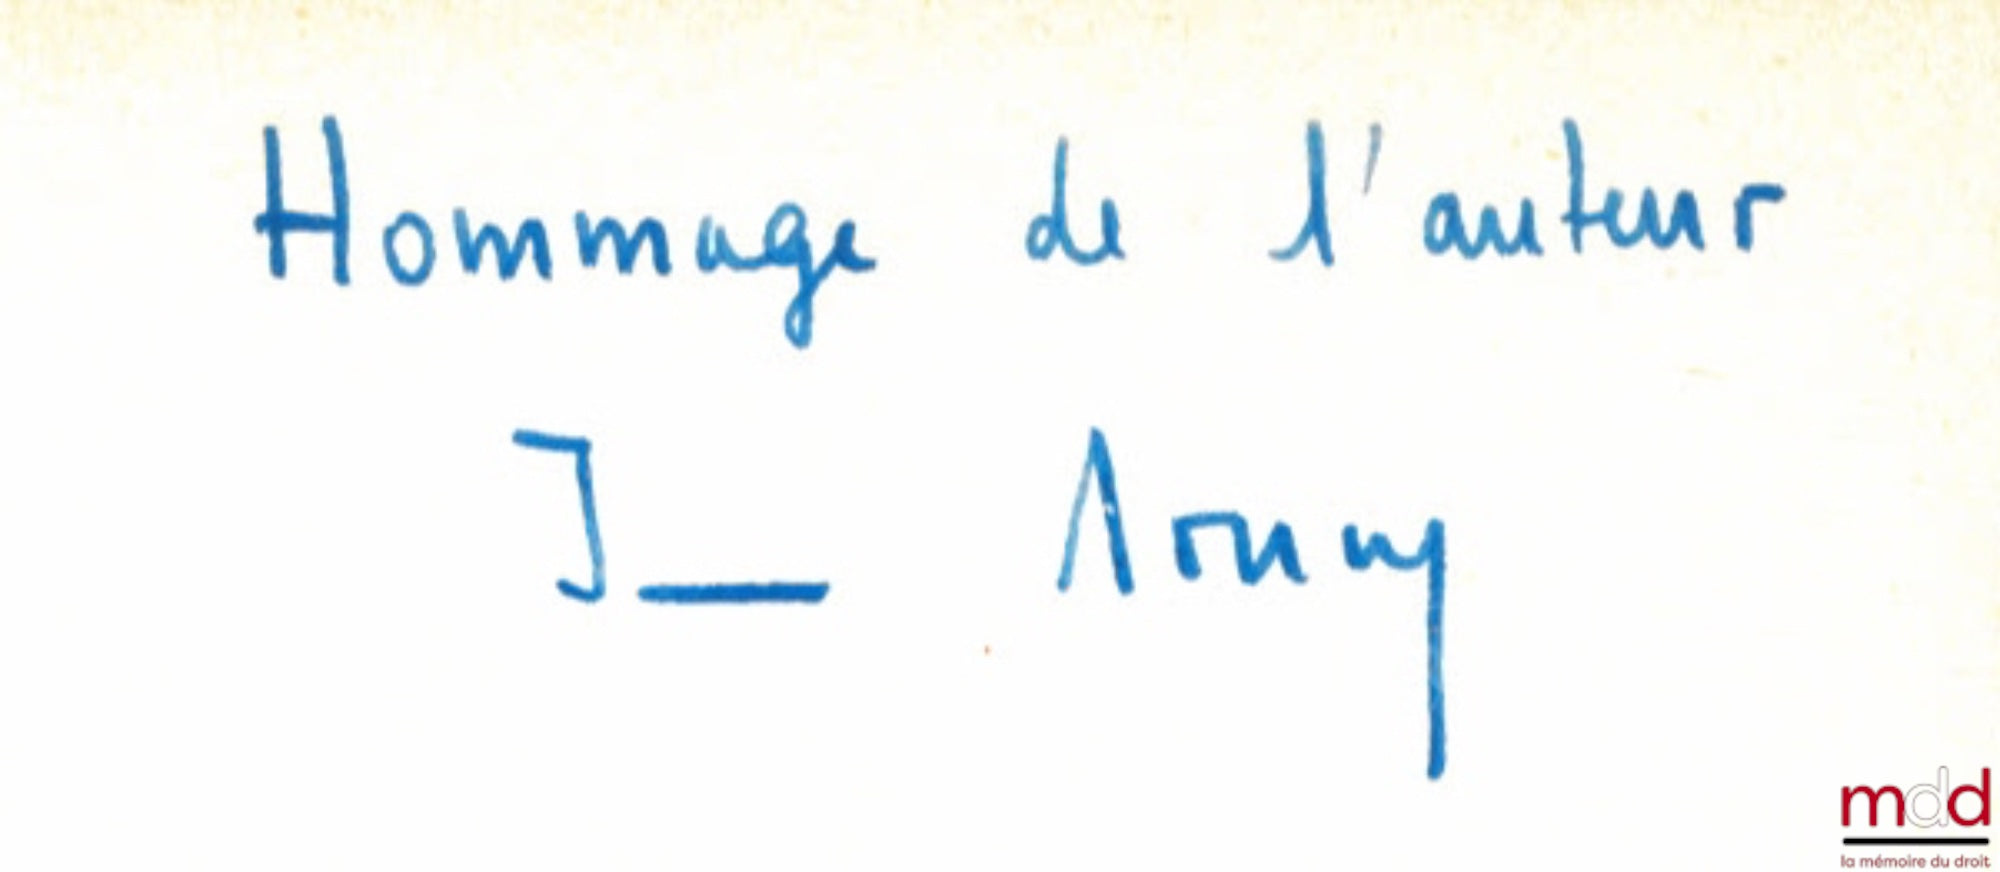 Hommage de l'auteur
J_
mdd
la mémoire du droit